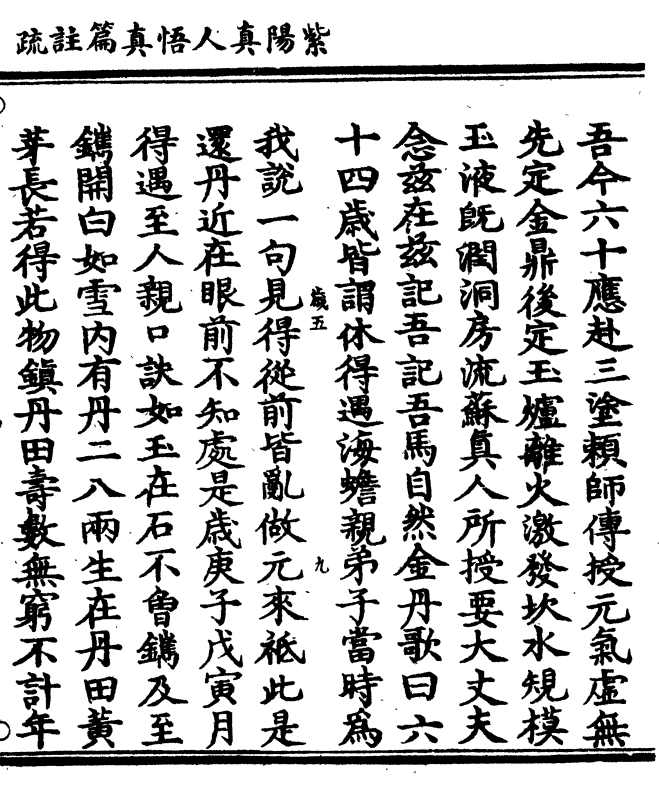 紫陽真人悟真篇註疏
吾今六十應赴三塗賴師傳授元氣虛無
先定金鼎後定玉爐離火激發坎水規模
玉液既潤洞房流蘇真人所授要大丈夫
念兹在兹記吾記吾馬自然金丹歌曰六
十四歲皆謂休得遇海蟾親弟子當時為
歲五
九
我說一句見得從前皆亂做元來祗此是
還丹近在眼前不知處是歲庚子戊寅月
得遇至人親口訣如玉在石不曾鐫及至
鐫開白如雪內有丹二八兩生在丹田黃
芽長若得此物鎮丹田壽數無窮不計年